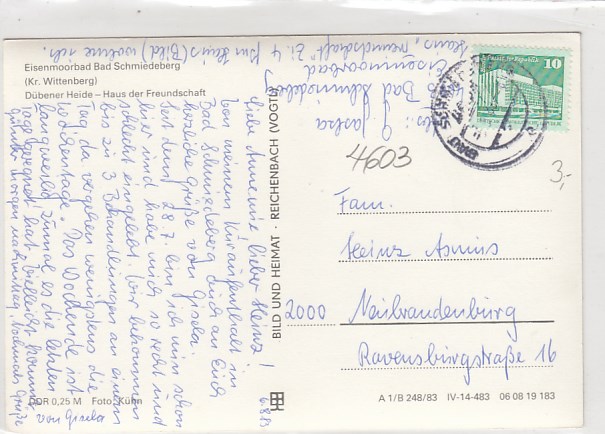 Eisenmoorbad Bad Schmiedeberg
(Kr. Wittenberg)
Dübener Heide – Haus der Freundschaft
6.8.83
Liebe Annemie lieber Heinz!
Von meinem Kuraufenthalt in
Bad Schmiedeberg Euch
herzliche Grüße von Gisela.
Seit dem 28.7. bin ich nun schon
hier und habe mich so recht und
schlecht eingelebt. Wir bekommen
bis zu 3 Behandlungen an einem
Tag, da vergehen wenigstens die
Wochentage. Das Wochenende ist
langweilig zumal es die letzten
Tage
von Gisela
Abs.: G.
Bad Schmiedeberg
Eisenmoorbad
Haus „Freundschaft“ Zi. 4
Im Haus (Bild) wohne ich.
DDR 0,25 M Foto: Kühn
BILD UND HEIMAT · REICHENBACH (VOGTL)
10
4603
3,-
Fam.
Heinz Asmus
2000 Neubrandenburg
Ravensburgstraße 16
A 1/B 248/83 IV-14-483 06 08 19 183